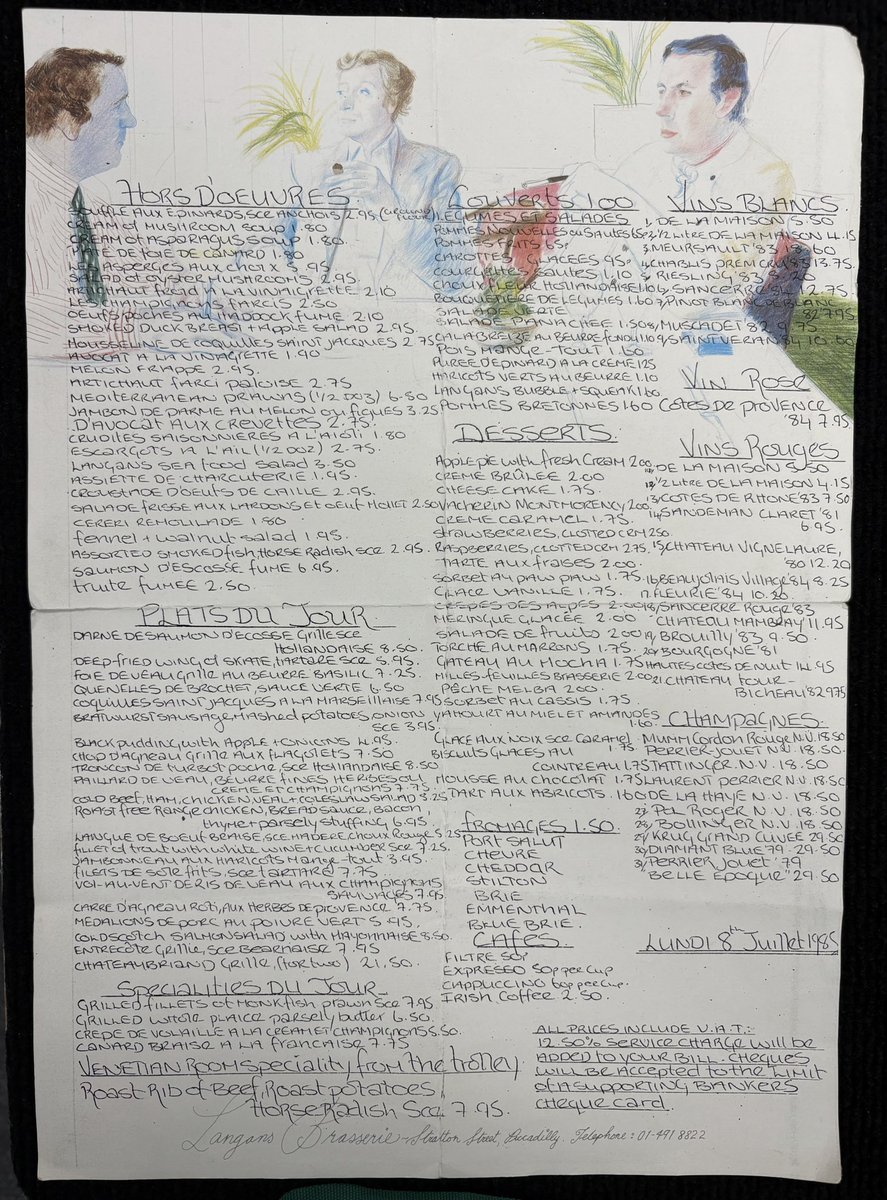 HORS D'OEUVRES.
SOUFFLE AUX EPINARDS, SCE ANCHOIS 2.95
CREAM of MUSHROOM SOUP 1.80
CREAM of ASPARAGUS SOUP 1.80.
PATE DE FOIE DE CANARD 1.80
LES ASPERGES AUX CHOIX 5.95
SALAD of OYSTER MUSHROOMS 2.95.
ARTICHAUT FROID A LA VINAIGRETTE 2.10
LES CHAMPIGNONS FARCIS 2.50
OEUFS POCHES AU HADDOCK FUME 2.10
SMOKED DUCK BREAST + APPLE SALAD 2.95.
MOUSSELINE DE COQUILLES SAINT JACQUES 2.75
AVOCAT A LA VINAIGRETTE 1.90
MELON FRAPPE 2.95.
ARTICHAUT FARCI PALOISE 2.75
MEDITERRANEAN PRAWNS (1/2 DOZ) 6.50
JAMBON DE PARME AU MELON OU FIGUES 3.25
D'AVOCAT AUX CREVETTES 2.75.
CRUDITES SAISONNIERES A L'AIOLI 1.80
ESCARGOTS A L'AIL (1/2 DOZ) 2.75.
LANGANS SEA food SALAD 3.50
ASSIETTE DE CHARCUTERIE 1.95.
CROUSTADE D'OEUFS DE CAILLE 2.95.
SALADE FRISEE AUX LARDONS ET OEUF MOLLET 2.50
CERERI REMOULADE 1.80
fennel + walnut salad 1.95.
ASSORTED SMOKED fish, HORSE RADISH SCE 2.95.
SAUMON D'ESCOSSE FUME 6.95.
truite fumee 2.50.
PLATS DU JOUR
DARNE DE SAUMON D'ECOSSE Grille sce
HOLLANDAISE 8.50.
DEEP-FRIED WING of SKATE, TARTARE SCE 5.95.
FOIE DE VEAU Grille AU BEURRE BASILIC 7.25.
QUENELLES DE BROCHET, SAUCE VERTE 6.50
COQUILLES SAINT JACQUES A LA MARSEILLAISE 7.95
BRATWURST SAUSAGE, MASHED POTATOES, ONION
SCE 3.95.
BLACK PUDDING WITH APPLE + ONIONS 4.95.
CHOP D'AGNEAU Grille AUX FLAGOLETS 7.50
TRONCON DE TURBOT poche, sce HOLLANDAISE 8.50
PAILLARD DE VEAU, BEURRE FINES HERBES OU
CREME ET CHAMPIGNONS 7.75
COLD BEEF, HAM, CHICKEN, VEAL + COLESLAW SALAD 3.25
ROAST free RANGE CHICKEN, BREAD SAUCE, BACON,
thyme + parsely stuffing 6.95.
LANGUE DE BOEUF BRAISE, SCE MADERE CHOUX ROUGE 5.25
fillet of trout with white WINE + CUCUMBER SCE 7.25.
JAMBONNEAU AUX HARICOTS Mange-tout 3.95.
FILETS DE SOLE frits, sce TARTARE 7.75.
VOL-AU-VENT DE RIS DE VEAU AUX CHAMPIGNONS
SAUVAGES 7.95
CARRE D'AGNEAU ROTI, AUX HERBES DE PROVENCE 7.75.
MEDALIONS DE PORC AU POIVRE VERT 5.95.
COLD SCOTCH SALMON SALAD with MAYONNAISE 8.50.
ENTRECOTE Grille, SCE BEARNAISE 7.95
CHATEAUBRIAND GRILLE, (for two) 21.50.
Specialities DU JOUR
GRILLED FILLETS of MONKfish prawn Sce 7.95
GRILLED WHOLE PLAICE parsely butter 6.50.
CREPE DE VOLAILLE A LA CREME ET CHAMPIGNONS 5.50.
CANARD BRAISE A LA francaise 7.75
VENETIAN ROOM speciality from the trolley
Roast Rib of Beef, Roast potatoes,
Horse Radish Sce 7.95.
COUVERTS 1.00
LEGUMES ET SALADES
POMMES NOUVELLES ou SAUTES 65p
POMMES FRITS 65p
CAROTTES GLACEES 95p
COURGETTES SAUTES 1.10
CHEUX FLEUR HOLLANDAISE 1.10
BOUQUETIERE DE LEGUMES 1.60
SALADE VERTE
SALADE PANACHEE 1.50
CALABRESE AU BEURRE FONDU 1.10
POIS MANGE-TOUT 1.60
PUREE D'EPINARD A LA CREME 1.25
HARICOTS VERTS AU BEURRE 1.10
LANGANS BUBBLE + SQUEAK 1.60
POMMES BRETONNES 1.60
DESSERTS.
Apple pie with fresh Cream 2.00
CREME BRÛLEE 2.00
CHEESE CAKE 1.75.
VACHERIN MONTMORENCY 2.00.
CREME CARAMEL 1.75.
STRAWBERRIES, CLOTTED CRM 2.50.
RASPBERRIES, CLOTTED CRM 2.75.
TARTE AUX fraises 2.00.
SORBET AU PAW PAW 1.75.
GLACE VANILLE 1.75.
CREPES DES ALPES 2.00
MERINGUE GLACEE 2.00
SALADE DE fruits 2.00
TORCHE AU MARRONS 1.75.
GATEAU AU MOCHA 1.75
MILLES-FEUILLES BRASSERIE 2.00
PÊCHE MELBA 2.00.
SORBET AU CASSIS 1.75.
YAHOURT AU MIEL ET AMANDES
1.60.
GLACE AUX NOIX sce CARAMEL
1.75
BISCUITS GLACES AU
COINTREAU 1.75
MOUSSE AU CHOCOLAT 1.75
TART AUX ABRICOTS 1.60
FROMAGES 1.50.
PORT SALUT
CHEVRE
CHEDDAR
STILTON
BRIE
EMMENTHAL
BLUE BRIE.
CAFES.
FILTRE 50p
EXPRESSO 50p per Cup
CAPPUCCINO 60p per cup.
IRISH COFFEE 2.50.
VINS BLANCS
1, DE LA MAISON 5.50
2, 1/2 LITRE DE LA MAISON 4.15
3, MEURSAULT '83 18.60
4, CHABLIS PREM CRU '83 13.75.
5, RIESLING '83
6, SANCERRE
7, PINOT BLANC DE BLANC
'82 7.95.
8, MUSCADET '82 9.75
9, SAINT VERAN '84 10.60
VIN ROSE
COTES DE PROVENCE
'84 7.95.
VINS ROUGES
DE LA MAISON 5.50
12, 1/2 LITRE DE LA MAISON 4.15
13, COTES DE RHONE '83 7.50
14, SANDEMAN CLARET '81
6.95.
15, CHATEAU VIGNELAURE,
'80 12.20
16, BEAUJOLAIS VILLAGE '84 8.25
17, FLEURIE '84 10.20
18, SANCERRE ROUGE '83
CHATEAU MAMBRAY 11.95
19, BROUILLY '83 9.50.
20, BOURGOGNE '81
HAUTES COTES DE NUIT 14.95
21, CHATEAU TOUR-
BICHEAU '82 9.75
CHAMPAGNES.
MUMM Cordon Rouge N.V. 18.50
PERRIER-JOUET N.V. 18.50.
TATTINGER N.V. 18.50
LAURENT PERRIER N.V. 18.50
DE LA HAYE N.V. 18.50
POL ROGER N.V. 18.50
BOLLINGER N.V. 18.50
KRUG GRAND CUVEE 29.50
DIAMANT BLUE '79 29.50
PERRIER JOUET '79
"BELLE EPOQUE" 29.50
LUNDI 8th Juillet 1985
ALL PRICES INCLUDE V.A.T.:
12.50% SERVICE CHARGE will be
ADDED TO YOUR BILL. CHEQUES
WILL BE ACCEPTED TO THE LIMIT
OF A SUPPORTING BANKERS
CHEQUE CARD.
Langans Brasserie - Stratton Street, Piccadilly. Telephone: 01-491 8822